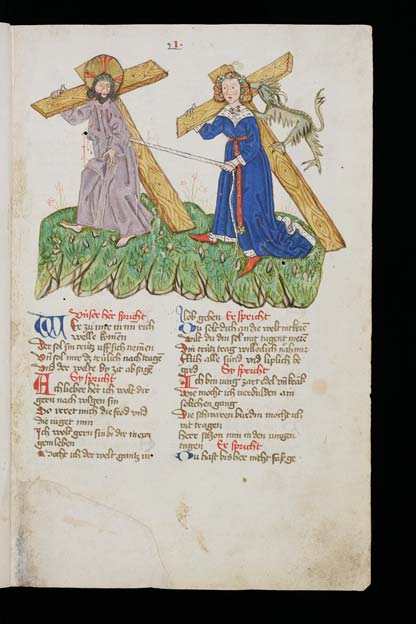 .1.
Vnser her spricht
Wer zu mir in mi rich
welle komen
Der sol sin crütz uff sich nemen
Vn sol mir dz trülich nach tragē
Vnd der welte by zit ab sage
Sy spricht
Ach lieber her ich wolt dir
gern nach volgen sin
So irret mich die frod vnd
die iuget min
Ich wolt gern sin bi dir
gem leben
Mocht ich der welt gantz
vlob geben Er spricht
Du solt dich an die welt nit kerē
Wilt du din sel mit tugent mere
Din crütz trag willeclich nach mir
Flüh alle sünd vnd liplich be
gird
Sy spricht
Ich bin iung zart edel vn krāk
Wie mocht ich verdulden ain
solichen gang
Die schwaren bürdin mocht ich
nit tragen
herr schon min in den iungen
tagen Er spricht
Du hast bis her nicht fast ge